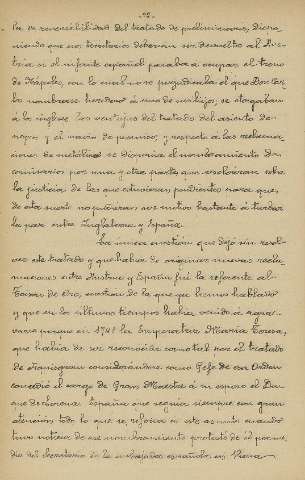 la reversibilidad del tratado de preliminares, dispo-
niendo que sus territorios debieran ser devueltos al Aus-
tria si el infante español pasaba a ocupar el trono
de Nápoles, con lo cual no se perjudicaba el que Don Car-
los nombrase heredero á uno de sus hijos, se otorgaban
á la inglesa las ventajas del tratado del asiento de
negros y el navío de permiso, y respecto á las reclamacio-
nes de metálico se disponía el nombramiento de
comisarios por una y otra parte que resolvieran sobre
la justicia de las que estuvieran pendientes para que
de esta suerte no quisieran ser motivo bastante á turbar
la paz entre Inglaterra y España.
La única cuestion que dejó sin resol-
ver este tratado y que habia de originar nuevas recla-
maciones entre Austria y España fué la referente al
Toison de Oro, cuestion de la que ya hemos hablado
y que en los últimos tiempos habia venido á agra-
varse porque en 1741 la Emperatriz Maria Teresa,
que habia de ser reconocida como tal por el tratado
de Aquisgran considerándose como Jefe de esa Orden
concedió el cargo de Gran Maestre á su esposo el Du-
que de Lorena. España que seguia siempre con gran
atencion todo lo que se referia á este asunto cuando
tuvo noticia de ese nombramiento protestó de él por me-
dio del Secretario de la embajada española en Viena